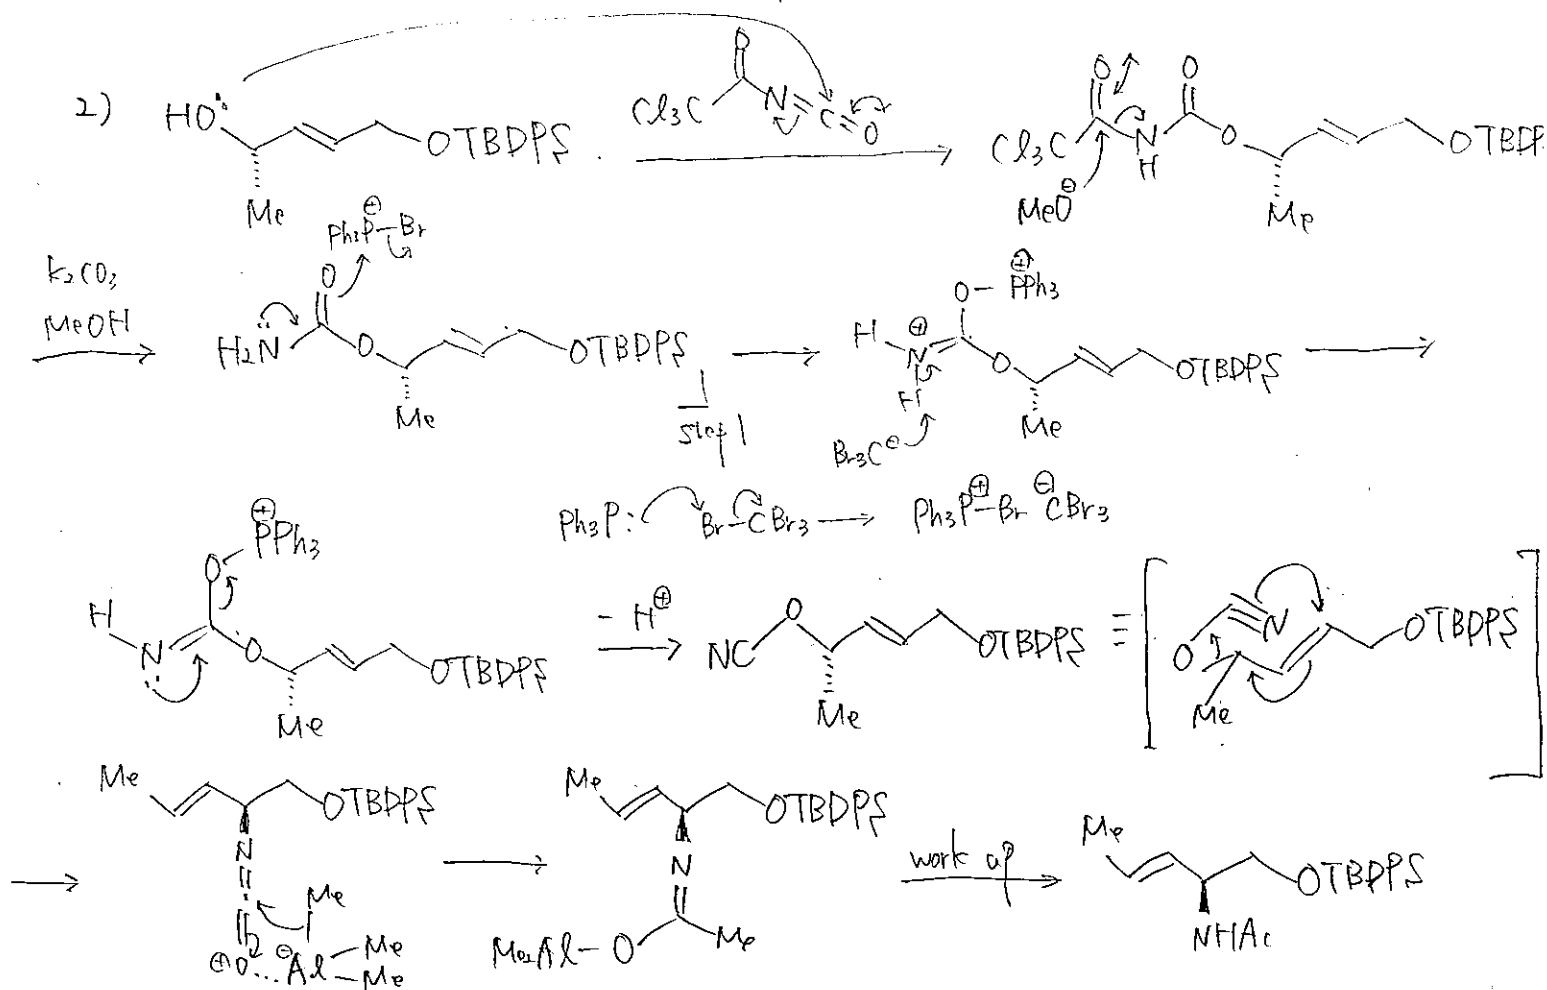 2) HO OTBDPS Me Cl3C O N=C=O Cl3C O N H O O OTBDP Me MeO⊖
K2CO3 MeOH
Ph3P⊕-Br H2N O O OTBDPS Me
step 1
O-⊕PPh3 H N⊕ H O OTBDPS Me Br3C⊖
Ph3P: Br-CBr3 → Ph3P⊕-Br ⊖CBr3
⊕PPh3 O H N O OTBDPS Me
-H⊕
NC O OTBDPS Me ≡ [ O N OTBDPS Me ]
Me OTBDPS N ⊕O ... ⊖Al Me Me Me
Me OTBDPS N Me2Al-O Me
work up
Me OTBDPS NHAc